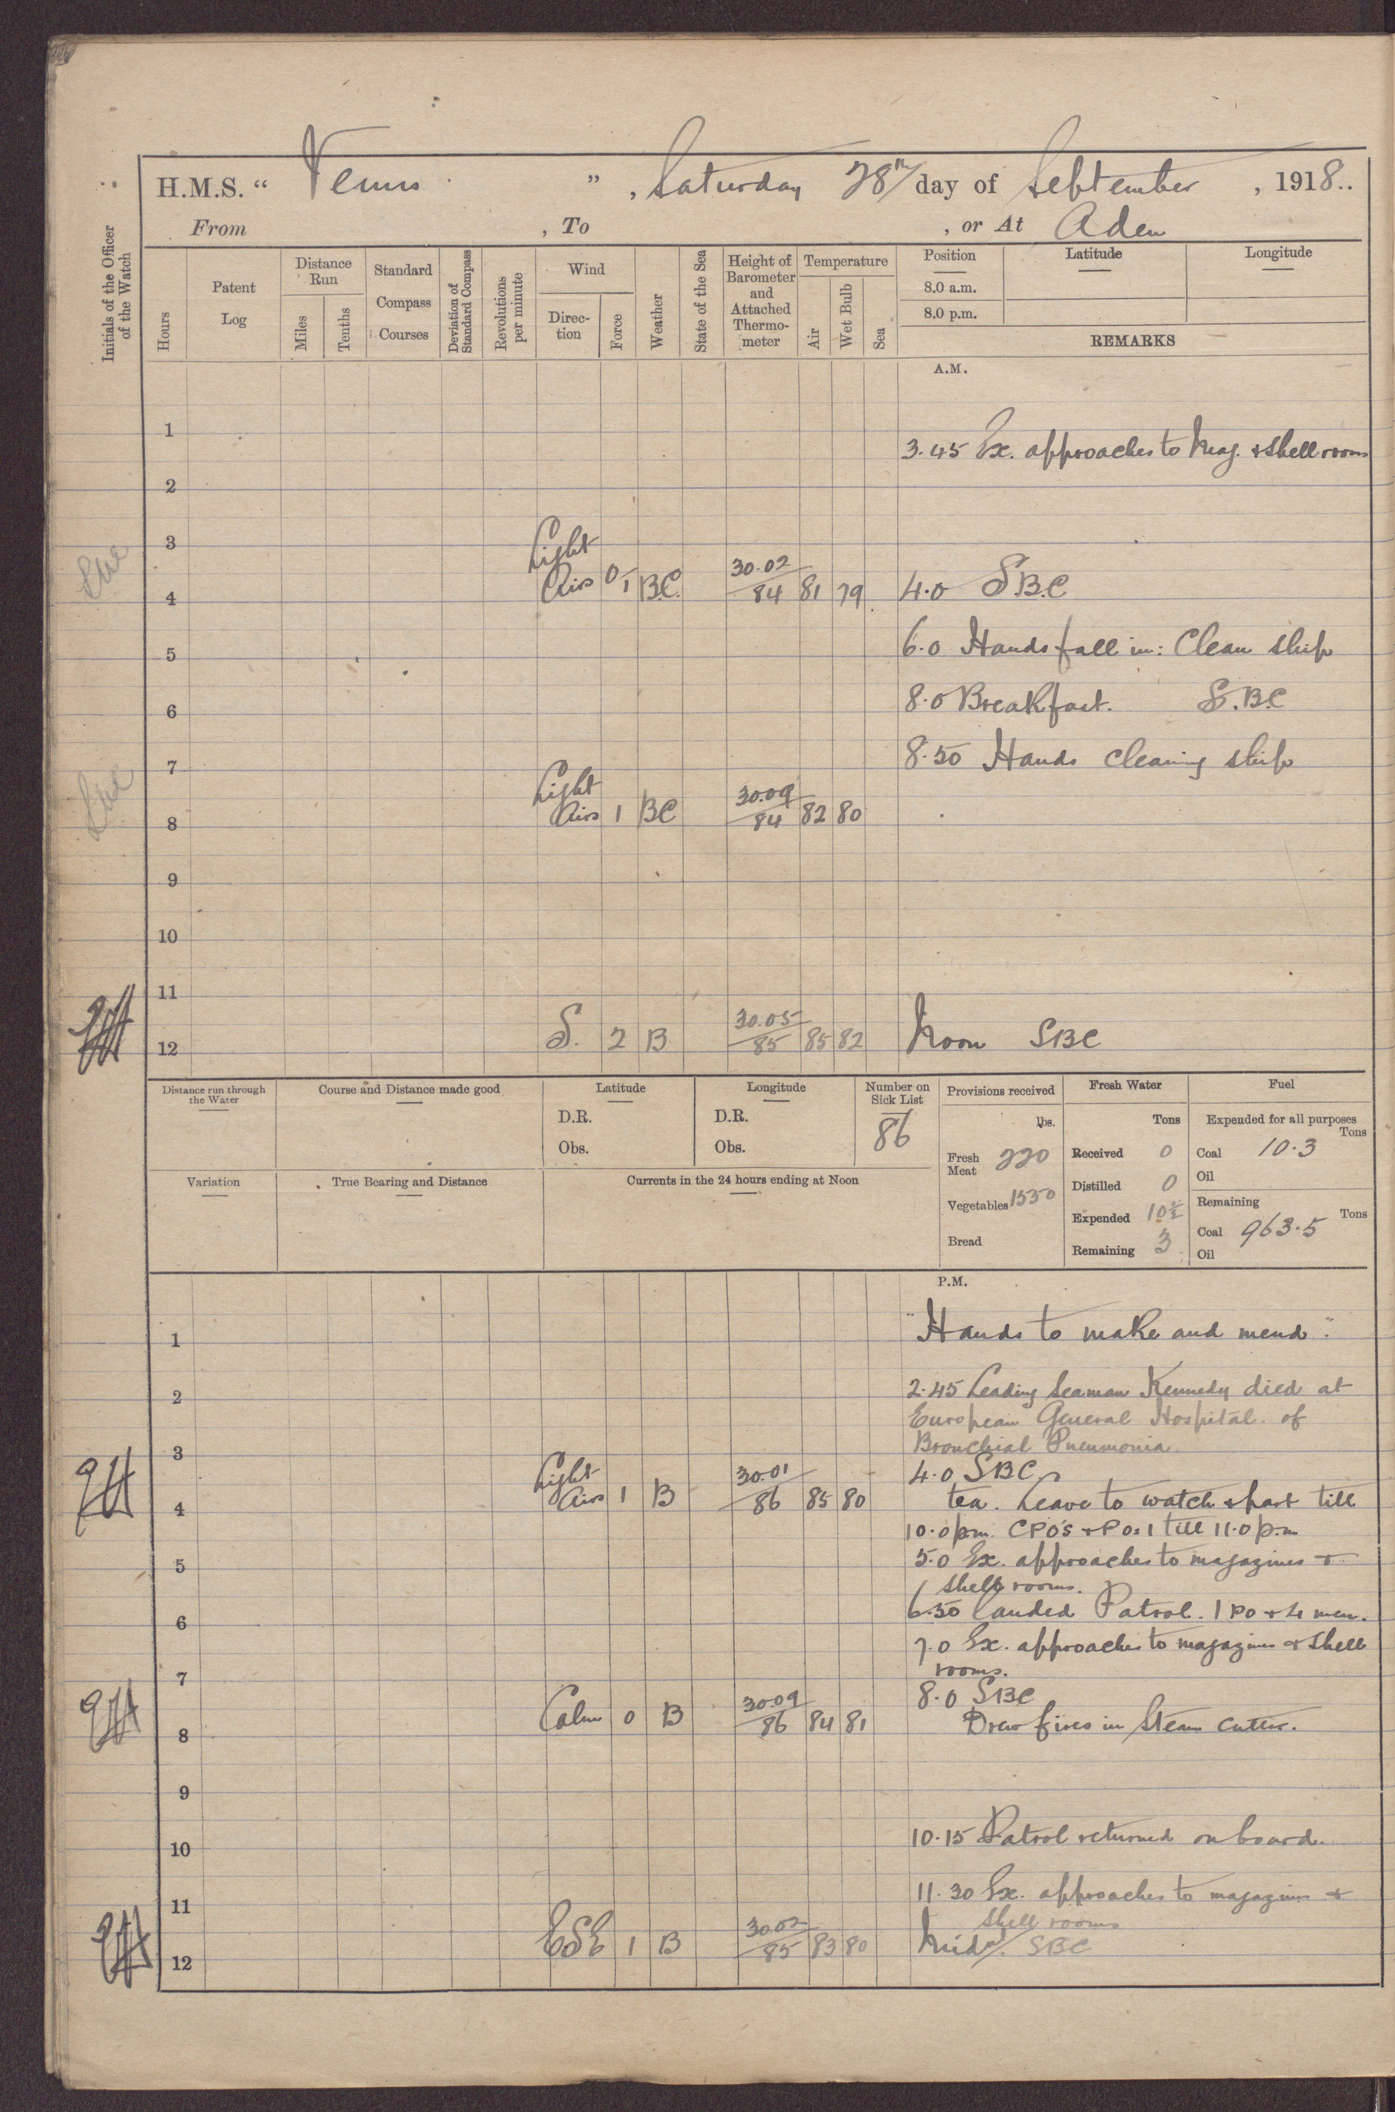 H.M.S. “ Venus ” , Saturday 28th day of September , 1918..
From , To , or At Aden
Initials of the Officer of the Watch
Hours
Patent Log
Distance Run
Miles
Tenths
Standard Compass Courses
Deviation of Standard Compass
Revolutions per minute
Wind
Direction
Force
Weather
State of the Sea
Height of Barometer and Attached Thermometer
Temperature
Air
Wet Bulb
Sea
Position
8.0 a.m.
8.0 p.m.
Latitude
Longitude
REMARKS
A.M.
1
3.45 Ex. approaches to Mag. & Shell rooms
2
3
4 Light Airs 0/1 B.C. 30.02/84 81 79 4.0 S B.C
5 6.0 Hands fall in: Clean ship
6 8.0 Breakfast. S.B.C
7 8.50 Hands cleaning ship
8 Light Airs 1 BC 30.09/84 82 80
9
10
11
12 S. 2 B 30.05/85 85 82 Noon SBC
Distance run through the Water
Course and Distance made good
Latitude
D.R.
Obs.
Longitude
D.R.
Obs.
Number on Sick List
86
Variation
True Bearing and Distance
Currents in the 24 hours ending at Noon
Provisions received
lbs.
Fresh Meat 220
Vegetables 1550
Bread
Fresh Water
Tons
Received 0
Distilled 0
Expended 10
Remaining 3
Fuel
Expended for all purposes
Tons
Coal 10.3
Oil
Remaining
Tons
Coal 963.5
Oil
P.M.
1 "Hands to make and mend".
2 2.45 Leading Seaman Kennedy died at
European General Hospital of
3 Bronchial Pneumonia.
4.0 SBC
4 Light Airs 1 B 30.01/86 85 80 tea. Leave to watch & part till
10.0 pm. CPO's & POs 1 till 11.0 p.m
5 5.0 Ex. approaches to magazines &
shell rooms.
6 6.30 landed Patrol. 1 PO & 4 men.
7.0 Ex. approaches to magazines & Shell
7 rooms.
8.0 SBC
8 Calm 0 B 30.09/86 84 81 Drew fires in Steam Cutter.
9
10 10.15 Patrol returned on board.
11 11.30 Ex. approaches to magazines &
shell rooms
12 ESE 1 B 30.02/85 83 80 Midt. SBC